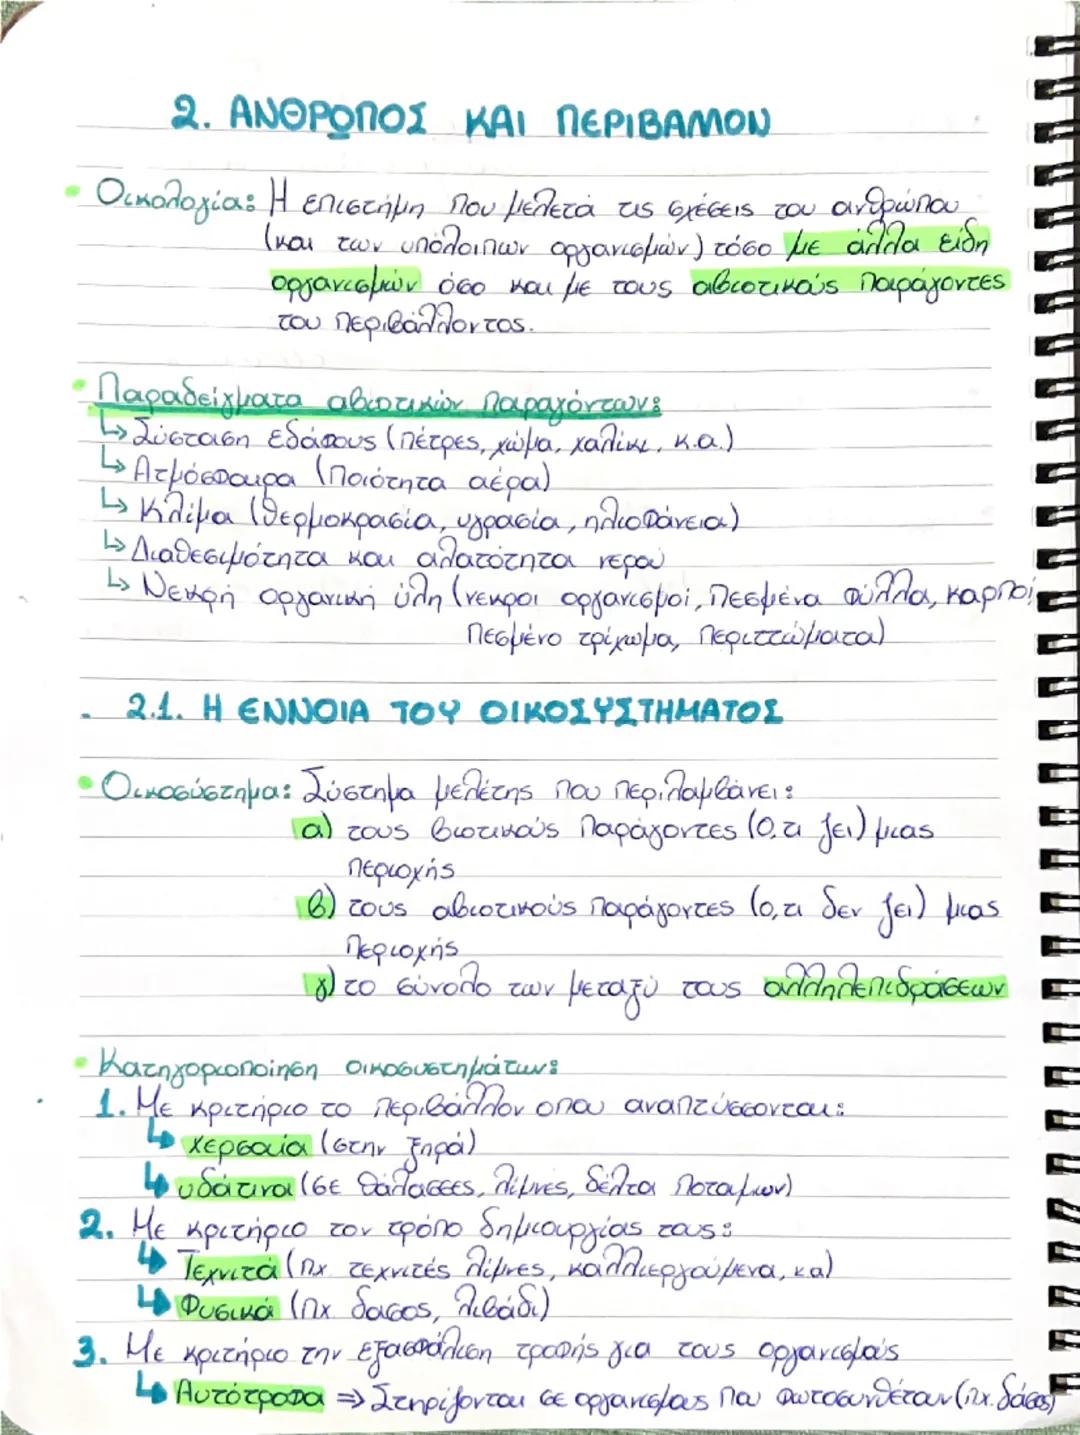 2. ΑΝΘΡΩΠΟΣ ΚΑΙ ΠΕΡΙΒΑΛΛΟΝ
• Οικολογία: Η επιστήμη που μελετά τις σχέσεις του ανθρώπου
(και των υπόλοιπων οργανισμών) τόσο με άλλα είδη
οργανισμών όσο και με τους αβιοτικούς παράγοντες
του περιβάλλοντος.
• Παραδείγματα αβιοτικών παραγόντων:
↳ Σύσταση εδάφους (πέτρες, χώμα, χαλίκι, κ.α.)
↳ Ατμόσφαιρα (ποιότητα αέρα)
↳ Κλίμα (θερμοκρασία, υγρασία, ηλιοφάνεια)
↳ Διαθεσιμότητα και αλατότητα νερού
↳ Νεκρή οργανική ύλη (νεκροί οργανισμοί, πεσμένα φύλλα, καρποί,
πεσμένο τρίχωμα, περιττώματα)
- 2.1. Η ΕΝΝΟΙΑ ΤΟΥ ΟΙΚΟΣΥΣΤΗΜΑΤΟΣ
• Οικοσύστημα: Σύστημα μελέτης που περιλαμβάνει:
α) τους βιοτικούς παράγοντες (ο,τι ζει) μιας
περιοχής
β) τους αβιοτικούς παράγοντες (ο,τι δεν ζει) μιας
περιοχής
γ) το σύνολο των μεταξύ τους αλληλεπιδράσεων
• Κατηγοριοποίηση οικοσυστημάτων:
1. Με κριτήριο το περιβάλλον οπου αναπτύσσονται:
↳ χερσαία (στην ξηρά)
↳ υδάτινα (σε θάλασσες, λίμνες, δέλτα ποταμων)
2. Με κριτήριο τον τρόπο δημιουργίας τους:
↳ Τεχνιτά (πχ. τεχνιτές λίμνες, καλλιεργούμενα, κα)
↳ Φυσικά (πχ. δασος, λιβάδι)
3. Με κριτήριο την εξασφάλιση τροφής για τους οργανισμούς
↳ Αυτότροφα ⇒ Στηρίζονται σε οργανισμους που φωτοσυνθέτουν (πχ. δάσος)